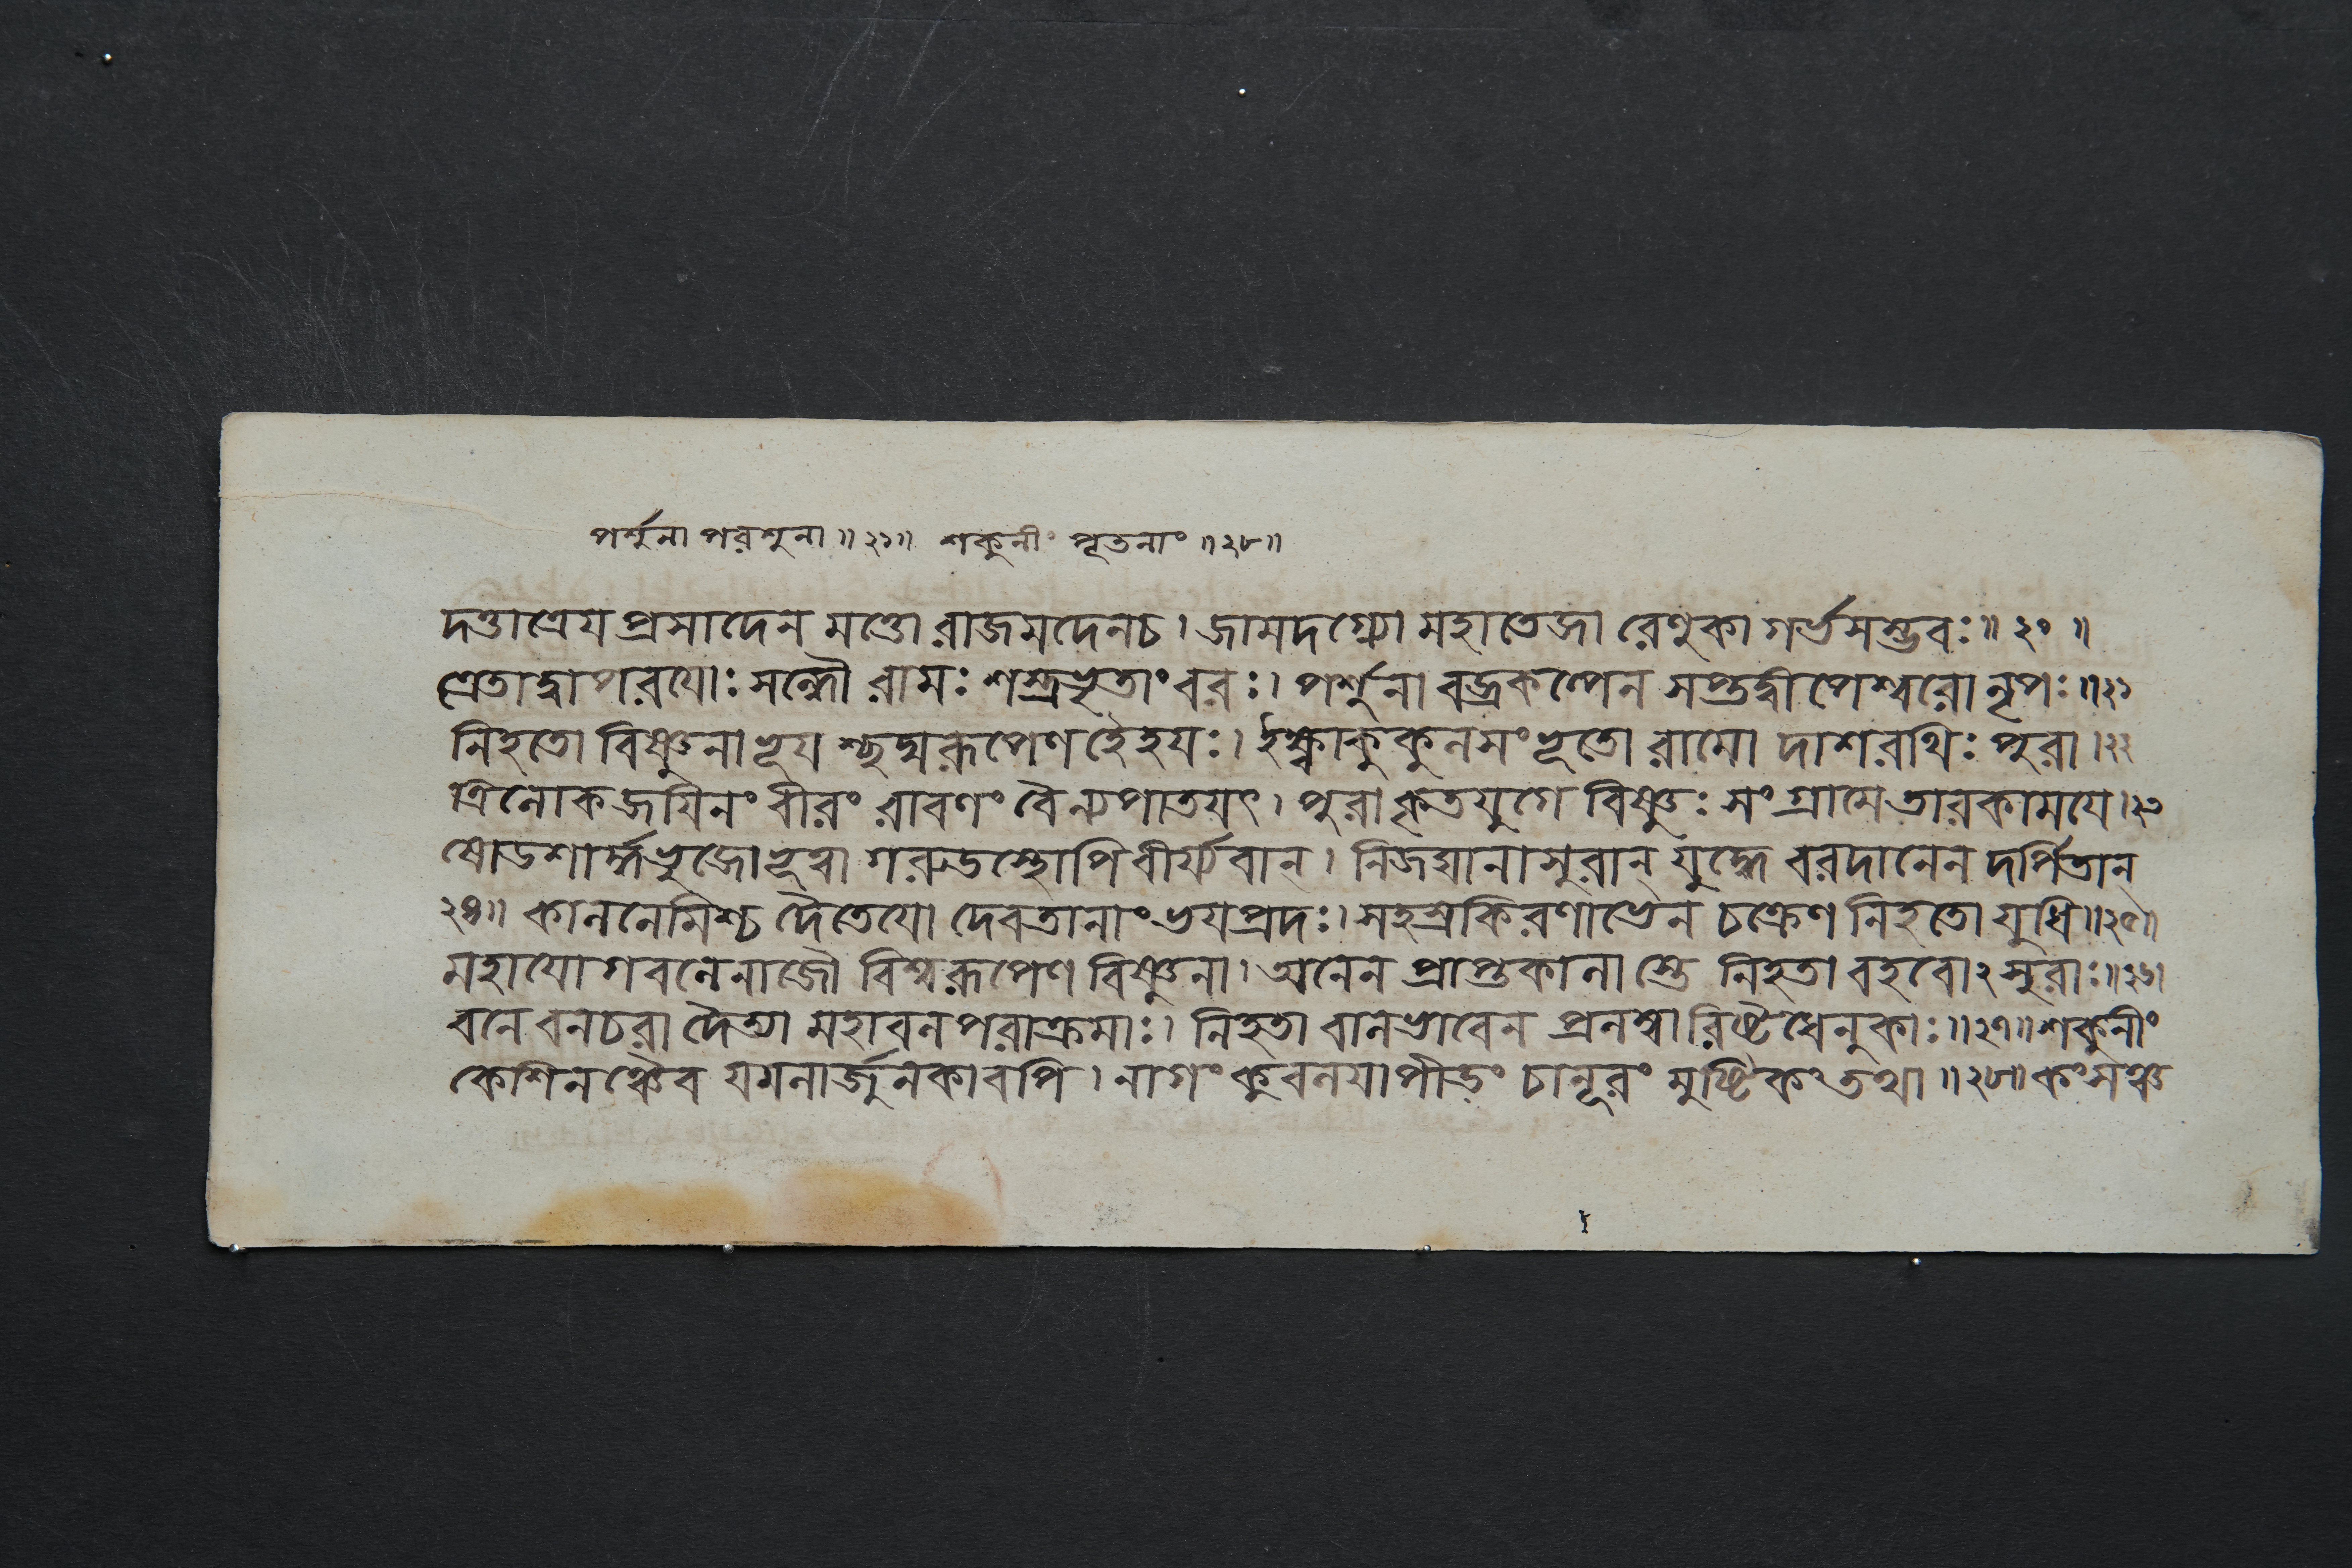 পর্শুনা পরশুনা॥২১॥ শকুনীং পূতনাং॥২৮॥
দত্তাত্রেয প্রসাদেন মত্তো রাজমদেনচ। জামদগ্ন্যো মহাতেজা রেণুকা গর্ভসম্ভবঃ॥২০॥
ত্রেতাদ্বাপরযোঃ সন্ধৌ রামঃ শস্ত্রভৃতাংবরঃ। পর্শুনা বজ্রকল্পেন সপ্তদ্বীপেশ্বরো নৃপঃ॥২১
নিহতো বিষ্ণুনাভূয শ্ছদ্মরূপেণ হৈহযঃ। ইক্ষ্বাকুকুলসংভূতো রামো দাশরথিঃ পুরা।২২
ত্রিলোকজযিনং বীরং রাবণং বৈন্যপাতয়ৎ। পুরা কৃতযুগে বিষ্ণুঃ সংগ্রামে তারকাময়ে।২৩
ষোডশার্দ্ধভুজোভূত্বা গরুডস্থোপি বীর্য্যবান্। নিজঘানাসুরান্ যুদ্ধে বরদানেন দর্পিতান্
২৪॥ কালনেমিশ্চ দৈতেযো দেবতানাং ভযপ্রদঃ। সহস্রকিরণাভেন চক্রেণ নিহতো যুধি॥২৫॥
মহাযোগবলেনাজৌ বিশ্বরূপেণ বিষ্ণুনা। অনেন প্রাপ্তকালাস্তে নিহতা বহবোঽসুরাঃ॥২৬।
বনে বনচরা দৈত্যা মহাবলপরাক্রমাঃ। নিহতা বালভাবেন প্রলম্বারিষ্টধেনুকাঃ॥২৭॥ শকুনীং
কেশিনঞ্চৈব যমলার্জুনকাবপি। নাগং কুবলযাপীডং চানূরং মুষ্টিকং তথা॥২৮॥ কংসঞ্চ